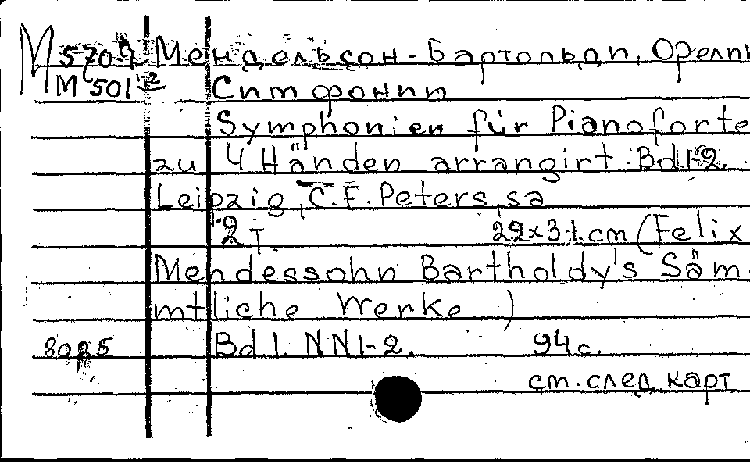 М 5709 Мендельсон-Бартольди, Фели
М 501-2 Симфонии
Symphonien für Pianoforte
zu 4 Händen arrangirt. Bd 1-2.
Leipzig, C. F. Peters, sa
2 т. 29x31. cm (Felix
Mendessohn Bartholdy's Säm-
mtliche Werke)
Bd 1. NN 1-2. 94 с.
см. след. карт